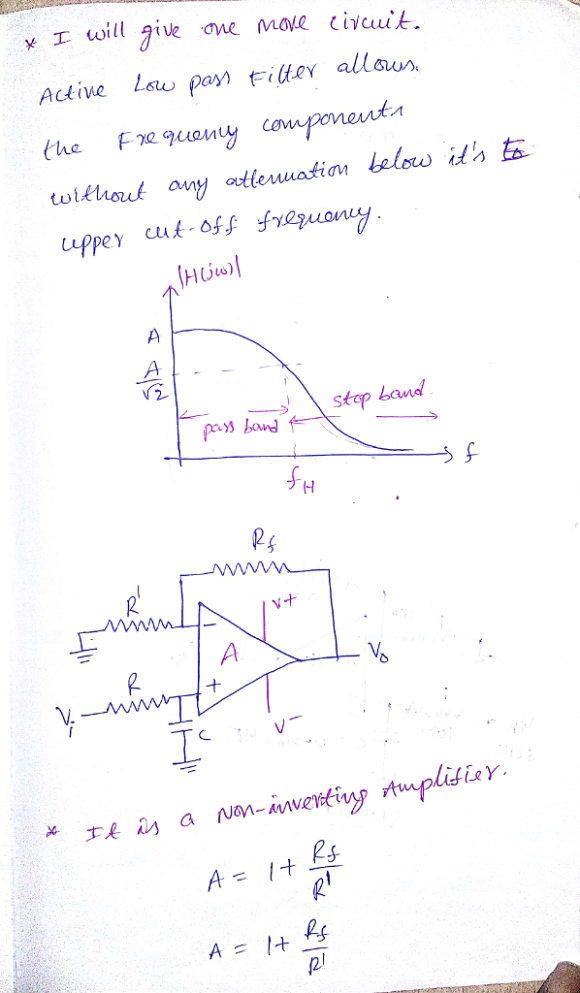 * I will give one more circuit.
Active Low pass Filter allows.
the Frequency components
without any attenuation below it's to
upper cut-off frequency.
|H(jω)|
A
A/√2
pass band
stop band.
f
fH
Rf
R'
V+
A
V0
R
Vi
C
V-
* It is a Non-inverting Amplifier.
A = 1 + Rf/R'
A = 1 + Rf/R'